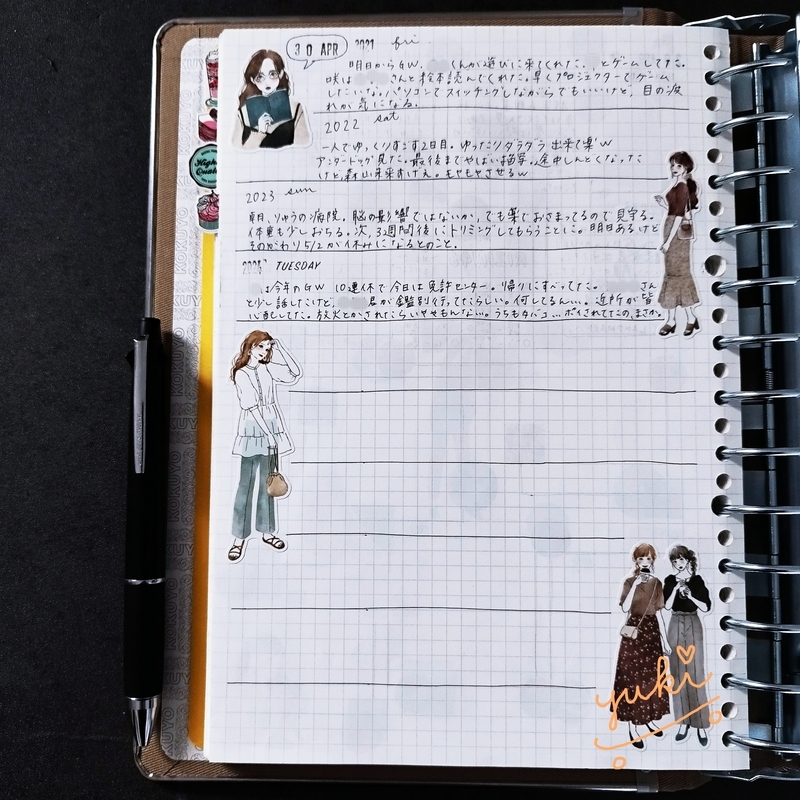 30 APR 2021 fri
明日からGW、くんが遊びに来てくれた。、とゲームしてた。
咲は さんと絵本読んでくれた。早くプロジェクターでゲーム
したいな。パソコンでスイッチングしながらでもいいけど、目の疲
れが気になる。
2022 sat
一人でゆっくりすごす2日目。ゆったりダラダラ出来て楽w
アンダードッグ見た。最後までやばい描写。途中しんどくなった
けど森山未來すげえ。もやもやさせるw
2023 sun
朝、りゅうの病院。脳の影響ではないか、でも薬でおさまってるので見守る。
体重も少しおちる。次、3週間後にトリミングしてもらうことに。明日あるけど
そのかわり5/2が休みになるとのこと。
2024 TUESDAY
は今年のGW 10連休で今日は免許センター。帰りにすべってた。 さん
と少し話したけど、 君が鑑別行ってたらしい。何してるん…。近所が皆
心配してた。放火とかされたらいややもんな…。うちもタバコ…ポイされてたこの、まさか。
High
Quality
KOKUYO
yuki